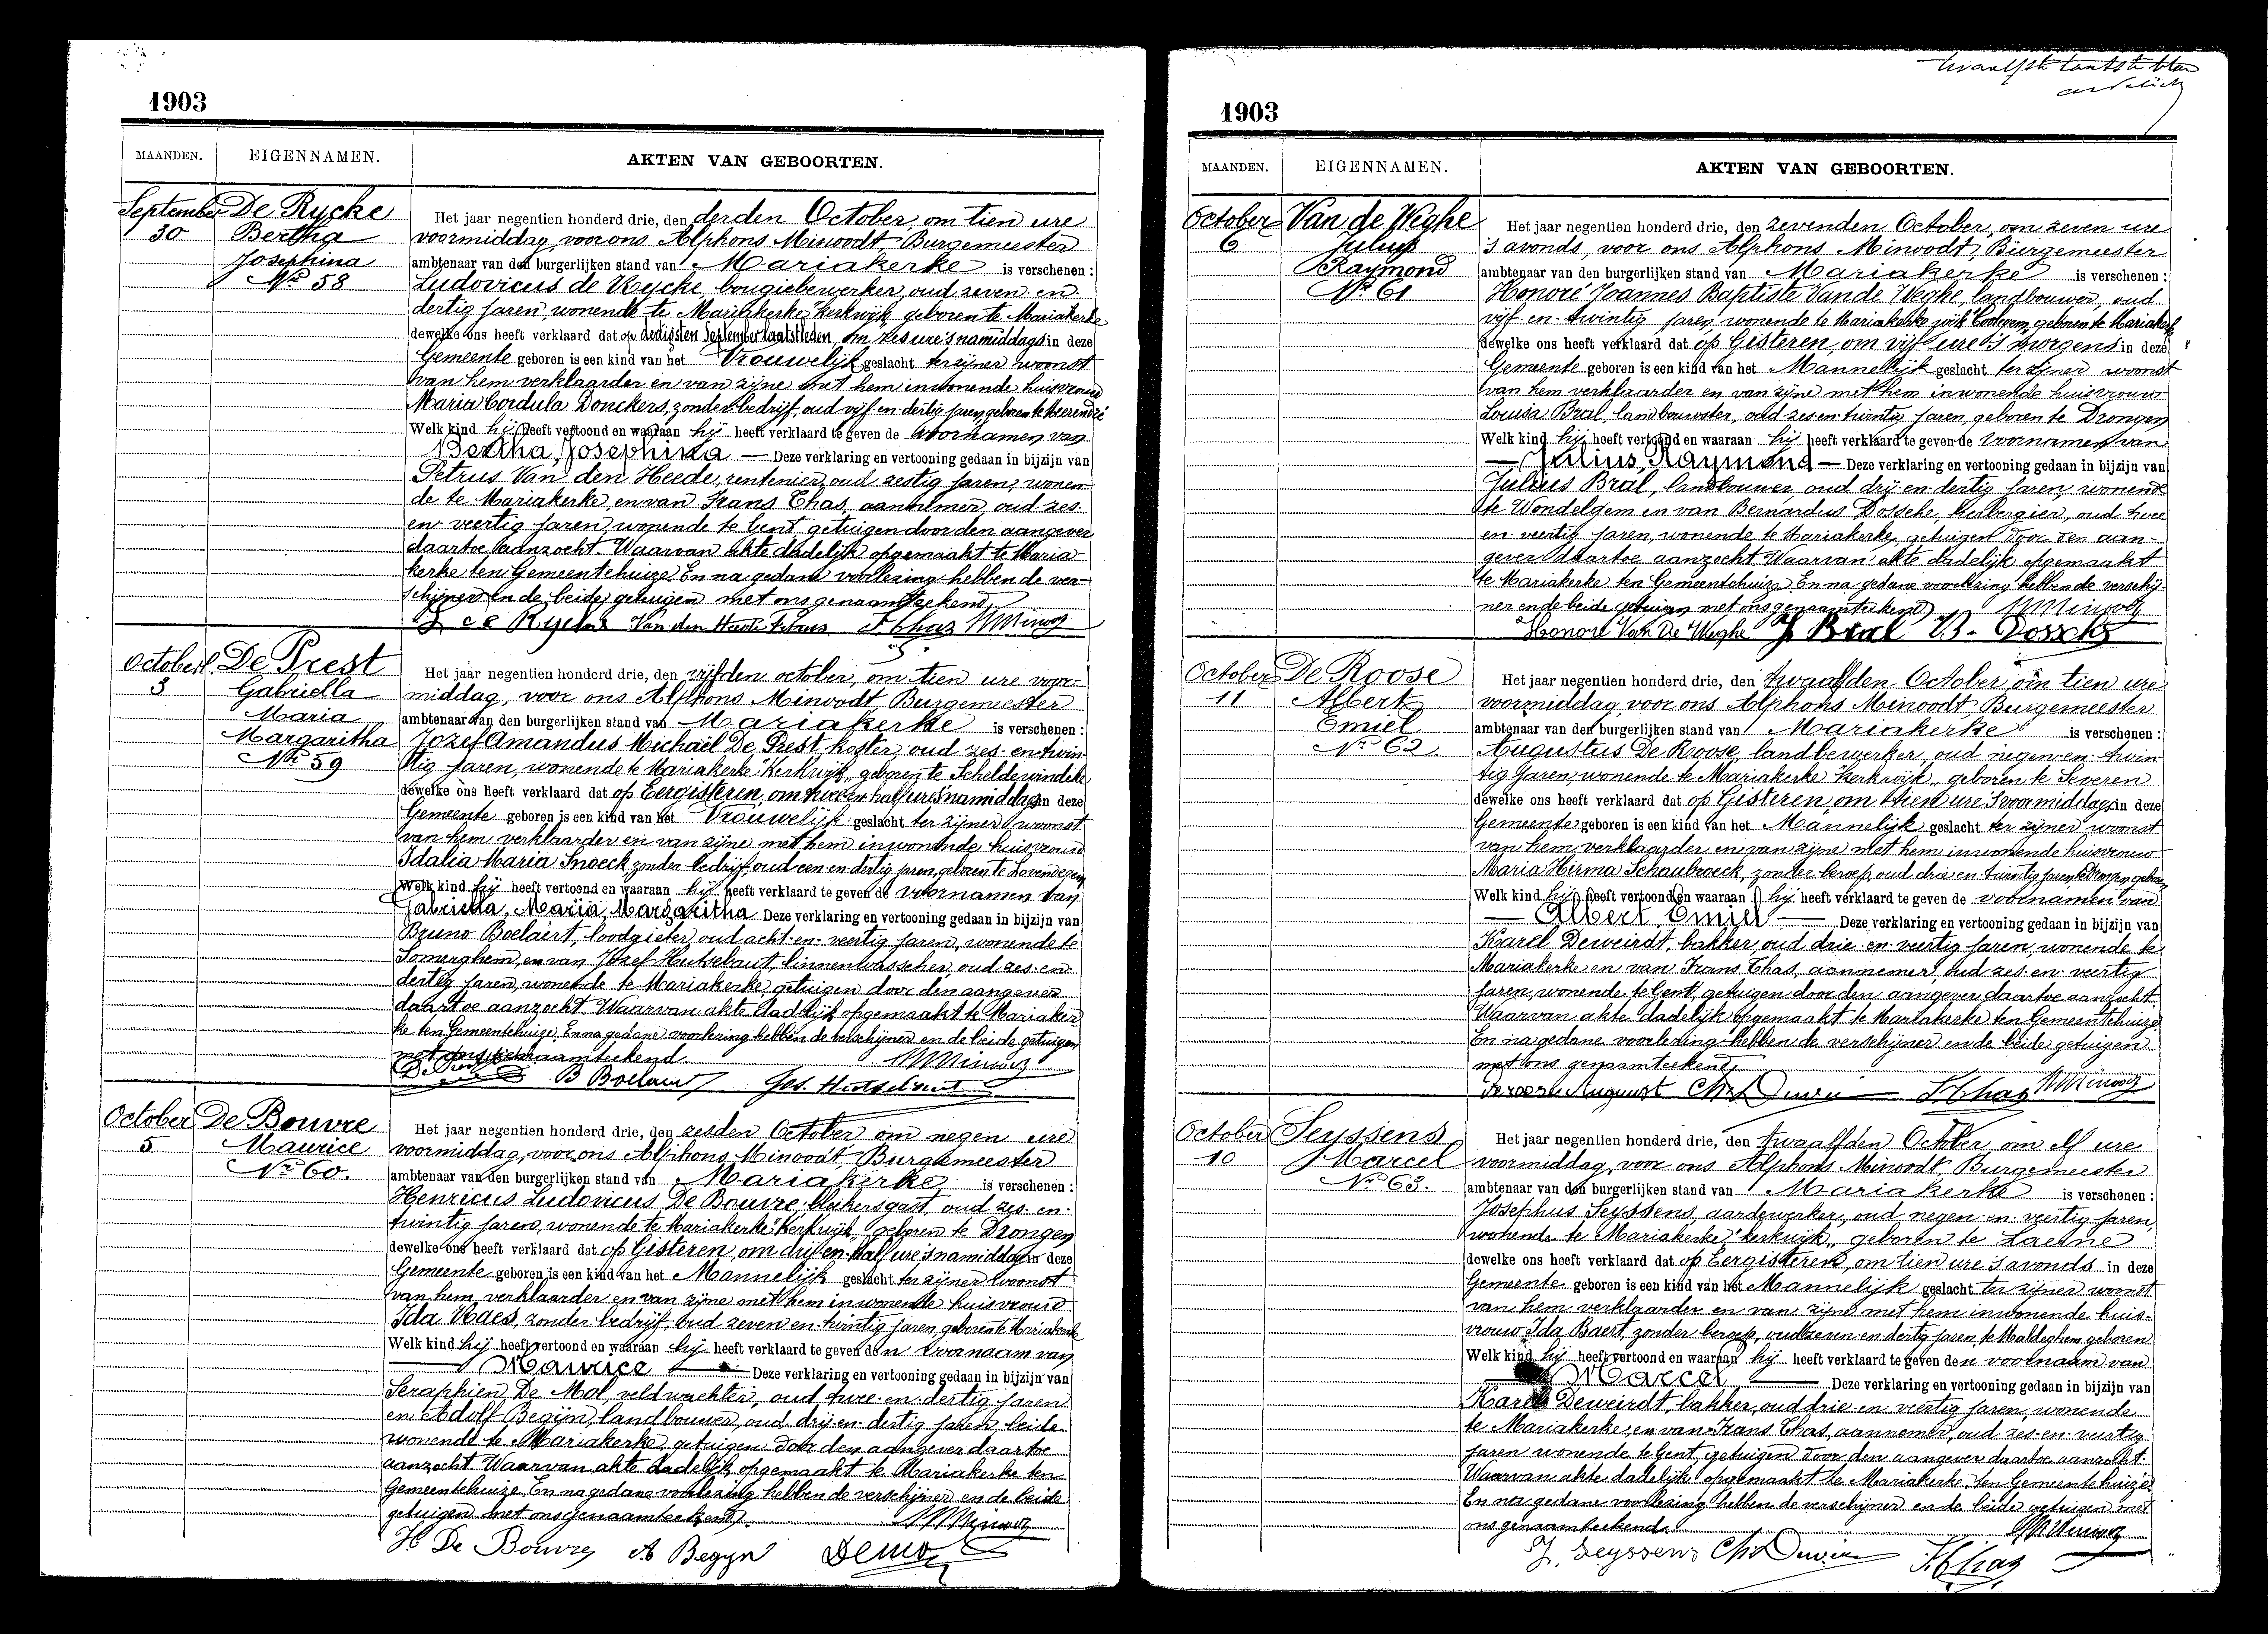 1903
MAANDEN. EIGENNAMEN. AKTEN VAN GEBOORTEN.
September 30
De Rycke
Bertha
Josephina
Nr 58
Het jaar negentien honderd drie, den derden October, om tien ure
voormiddag, voor ons Alphons Minoodt, Burgemeester
ambtenaar van den burgerlijken stand van Mariakerke is verschenen :
Ludovicus de Rycke, bougiebewerker, oud zeven en
dertig jaren, wonende te Mariakerke "Kerkwijk, geboren te Mariakerke
dewelke ons heeft verklaard dat op dertigsten September laatstleden, om zes ure 's namiddags in deze
Gemeente geboren is een kind van het Vrouwelijk geslacht ter zijner woonst
van hem verklaarder en van zijne met hem inwonende huisvrouw
Maria Cordula Donckers, zonder bedrijf, oud vijf en dertig jaren, geboren te Meerendré
Welk kind hij heeft vertoond en waaraan hij heeft verklaard te geven de voornamen van
Bertha, Josephina — Deze verklaring en vertooning gedaan in bijzijn van
Petrus Van den Heede, rentenier, oud zestig jaren, wonen-
de te Mariakerke, en van Frans Thas, aannemer, oud zes-
en veertig jaren, wonende te Gent, getuigen door den aangever
daartoe aanzocht. Waarvan akte dadelijk opgemaakt te Maria-
kerke ten Gemeentehuize. En na gedane voorlezing hebben de ver-
schijner en de beide getuigen met ons genaamteekend,
L de Rycke Van den Heede Petrus F. Thas AMinoodt
October 3
De Prest
Gabriella
Maria
Margaritha
Nr 59
Het jaar negentien honderd drie, den vijfden october, om tien ure voor-
middag, voor ons Alphons Minoodt, Burgemeester
ambtenaar van den burgerlijken stand van Mariakerke is verschenen :
Jozef Amandus Michaël De Prest, koster, oud zes en twin-
tig jaren, wonende te Mariakerke "Kerkwijk,, geboren te Schelderwindeke
dewelke ons heeft verklaard dat op Eergisteren, om twee en half ure 's namiddags in deze
Gemeente geboren is een kind van het Vrouwelijk geslacht ter zijner woonst
van hem verklaarder en van zijne met hem inwonende huisvrouw
Idalia Maria Snoeck, zonder bedrijf, oud een en dertig jaren, geboren te Lovendegem
Welk kind hij heeft vertoond en waaraan hij heeft verklaard te geven de voornamen van
Gabriella, Maria, Margaritha Deze verklaring en vertooning gedaan in bijzijn van
Bruno Boelaert, loodgieter, oud acht en veertig jaren, wonende te
Somerghem, en van Jozef Hutsebaut, linnenwasscher, oud zes en
dertig jaren, wonende te Mariakerke, getuigen door den aangever
daartoe aanzocht. Waarvan akte dadelijk opgemaakt te Mariaker-
ke ten Gemeentehuize. En na gedane voorlezing hebben de verschijner en de beide getuigen
met ons genaamteekend.
AMinoodt
B Boelaert Jos. Hutsebaut
October 5
De Bouvre
Maurice
Nr 60.
Het jaar negentien honderd drie, den zesden October om negen ure
voormiddag, voor ons Alphons Minoodt, Burgemeester
ambtenaar van den burgerlijken stand van Mariakerke is verschenen :
Henricus Ludovicus De Bouvre, blijkersgast, oud zes en
twintig jaren, wonende te Mariakerke "Kerkwijk,, geboren te Drongen
dewelke ons heeft verklaard dat op Gisteren, om drij en half ure 's namiddags in deze
Gemeente geboren is een kind van het Mannelijk geslacht ter zijner woonst
van hem verklaarder en van zijne met hem inwonende huisvrouw
Ida Maes, zonder bedrijf, oud zeven en twintig jaren, geboren te Mariakerke
Welk kind hij heeft vertoond en waaraan hij heeft verklaard te geven den voornaam van
Maurice — Deze verklaring en vertooning gedaan in bijzijn van
Seraphien De Mol, veldwachter, oud twee en dertig jaren
en Adolf Begijn, landbouwer, oud drij en dertig jaren, beide
wonende te Mariakerke, getuigen door den aangever daartoe
aanzocht. Waarvan akte dadelijk opgemaakt te Mariakerke ten
Gemeentehuize. En na gedane voorlezing hebben de verschijner en de beide
getuigen met ons genaamteekend.
AMinoodt
H De Bouvre A Begyn Demol
twaalfde laatste blad
1903
MAANDEN. EIGENNAMEN. AKTEN VAN GEBOORTEN.
October 6
Van de Weghe
Julius
Raymond
Nr 61
Het jaar negentien honderd drie, den zevenden October, om zeven ure
's avonds, voor ons Alphons Minoodt, Burgemeester
ambtenaar van den burgerlijken stand van Mariakerke is verschenen :
Honoré Joannes Baptiste Van de Weghe, landbouwer, oud
vijf en twintig jaren, wonende te Mariakerke wijk "Coolegem, geboren te Mariakerke
dewelke ons heeft verklaard dat op Gisteren, om vijf ure 's morgens in deze
Gemeente geboren is een kind van het Mannelijk geslacht ter zijner woonst
van hem verklaarder en van zijne met hem inwonende huisvrouw
Louisa Bral, landbouwster, oud zes en twintig jaren, geboren te Drongen
Welk kind hij heeft vertoond en waaraan hij heeft verklaard te geven de voornamen van
— Julius, Raymond — Deze verklaring en vertooning gedaan in bijzijn van
Julius Bral, landbouwer, oud drij en dertig jaren, wonende
te Wondelgem en van Bernardus Dossche, herbergier, oud twee
en veertig jaren, wonende te Mariakerke, getuigen door den aan-
gever daartoe aanzocht. Waarvan akte dadelijk opgemaakt
te Mariakerke ten Gemeentehuize. En na gedane voorlezing hebben de verschij-
ner en de beide getuigen met ons genaamteekend. AMinoodt
Honoré Van De Weghe J Bral B. Dossche
October 11
De Roose
Albert
Emiel
Nr 62
Het jaar negentien honderd drie, den twaalfden October om tien ure
voormiddag, voor ons Alphons Minoodt, Burgemeester
ambtenaar van den burgerlijken stand van Mariakerke is verschenen :
Augustus De Roose, landbewerker, oud negen en twin-
tig jaren, wonende te Mariakerke "Kerkwijk,, geboren te Severen
dewelke ons heeft verklaard dat op Gisteren om tien ure 's voormiddags in deze
Gemeente geboren is een kind van het Mannelijk geslacht ter zijner woonst
van hem verklaarder en van zijne met hem inwonende huisvrouw
Maria Hirma Schaubroeck, zonder beroep, oud drie en twintig jaren te Drongen geboren
Welk kind hij heeft vertoond en waaraan hij heeft verklaard te geven de voornamen van
— Albert, Emiel — Deze verklaring en vertooning gedaan in bijzijn van
Karel Deweirdt, bakker, oud drie en veertig jaren, wonende te
Mariakerke en van Frans Thas, aannemer, oud zes en veertig
jaren, wonende te Gent, getuigen door den aangever daartoe aanzocht
Waarvan akte dadelijk opgemaakt te Mariakerke ten Gemeentehuize
En na gedane voorlezing hebben de verschijner en de beide getuigen
met ons genaamteekend.
Deroose August F Thas AMinoodt
October 10
Seyssens
Marcel
Nr 63.
Het jaar negentien honderd drie, den twaalfden October om elf ure
voormiddag, voor ons Alphons Minoodt, Burgemeester
ambtenaar van den burgerlijken stand van Mariakerke is verschenen :
Josephus Seyssens, aardewerker, oud negen en veertig jaren,
wonende te Mariakerke, "kerkwijk,, geboren te Laerne
dewelke ons heeft verklaard dat op Eergisteren, om tien ure 's avonds in deze
Gemeente geboren is een kind van het Mannelijk geslacht ter zijner woonst
van hem verklaarder en van zijne met hem inwonende huis-
vrouw Ida Baert, zonder beroep, oud zeven en dertig jaren, te Maldeghem geboren
Welk kind hij heeft vertoond en waaraan hij heeft verklaard te geven den voornaam van
Marcel — Deze verklaring en vertooning gedaan in bijzijn van
Karel Deweirdt, bakker, oud drie en veertig jaren, wonende
te Mariakerke, en van Frans Thas, aannemer, oud zes en veertig
jaren wonende te Gent, getuigen door den aangever daartoe aanzocht.
Waarvan akte dadelijk opgemaakt te Mariakerke, ten Gemeentehuize.
En na gedane voorlezing hebben de verschijner en de beide getuigen met
ons genaamteekend. AMinoodt
J. Seyssens F. Thas